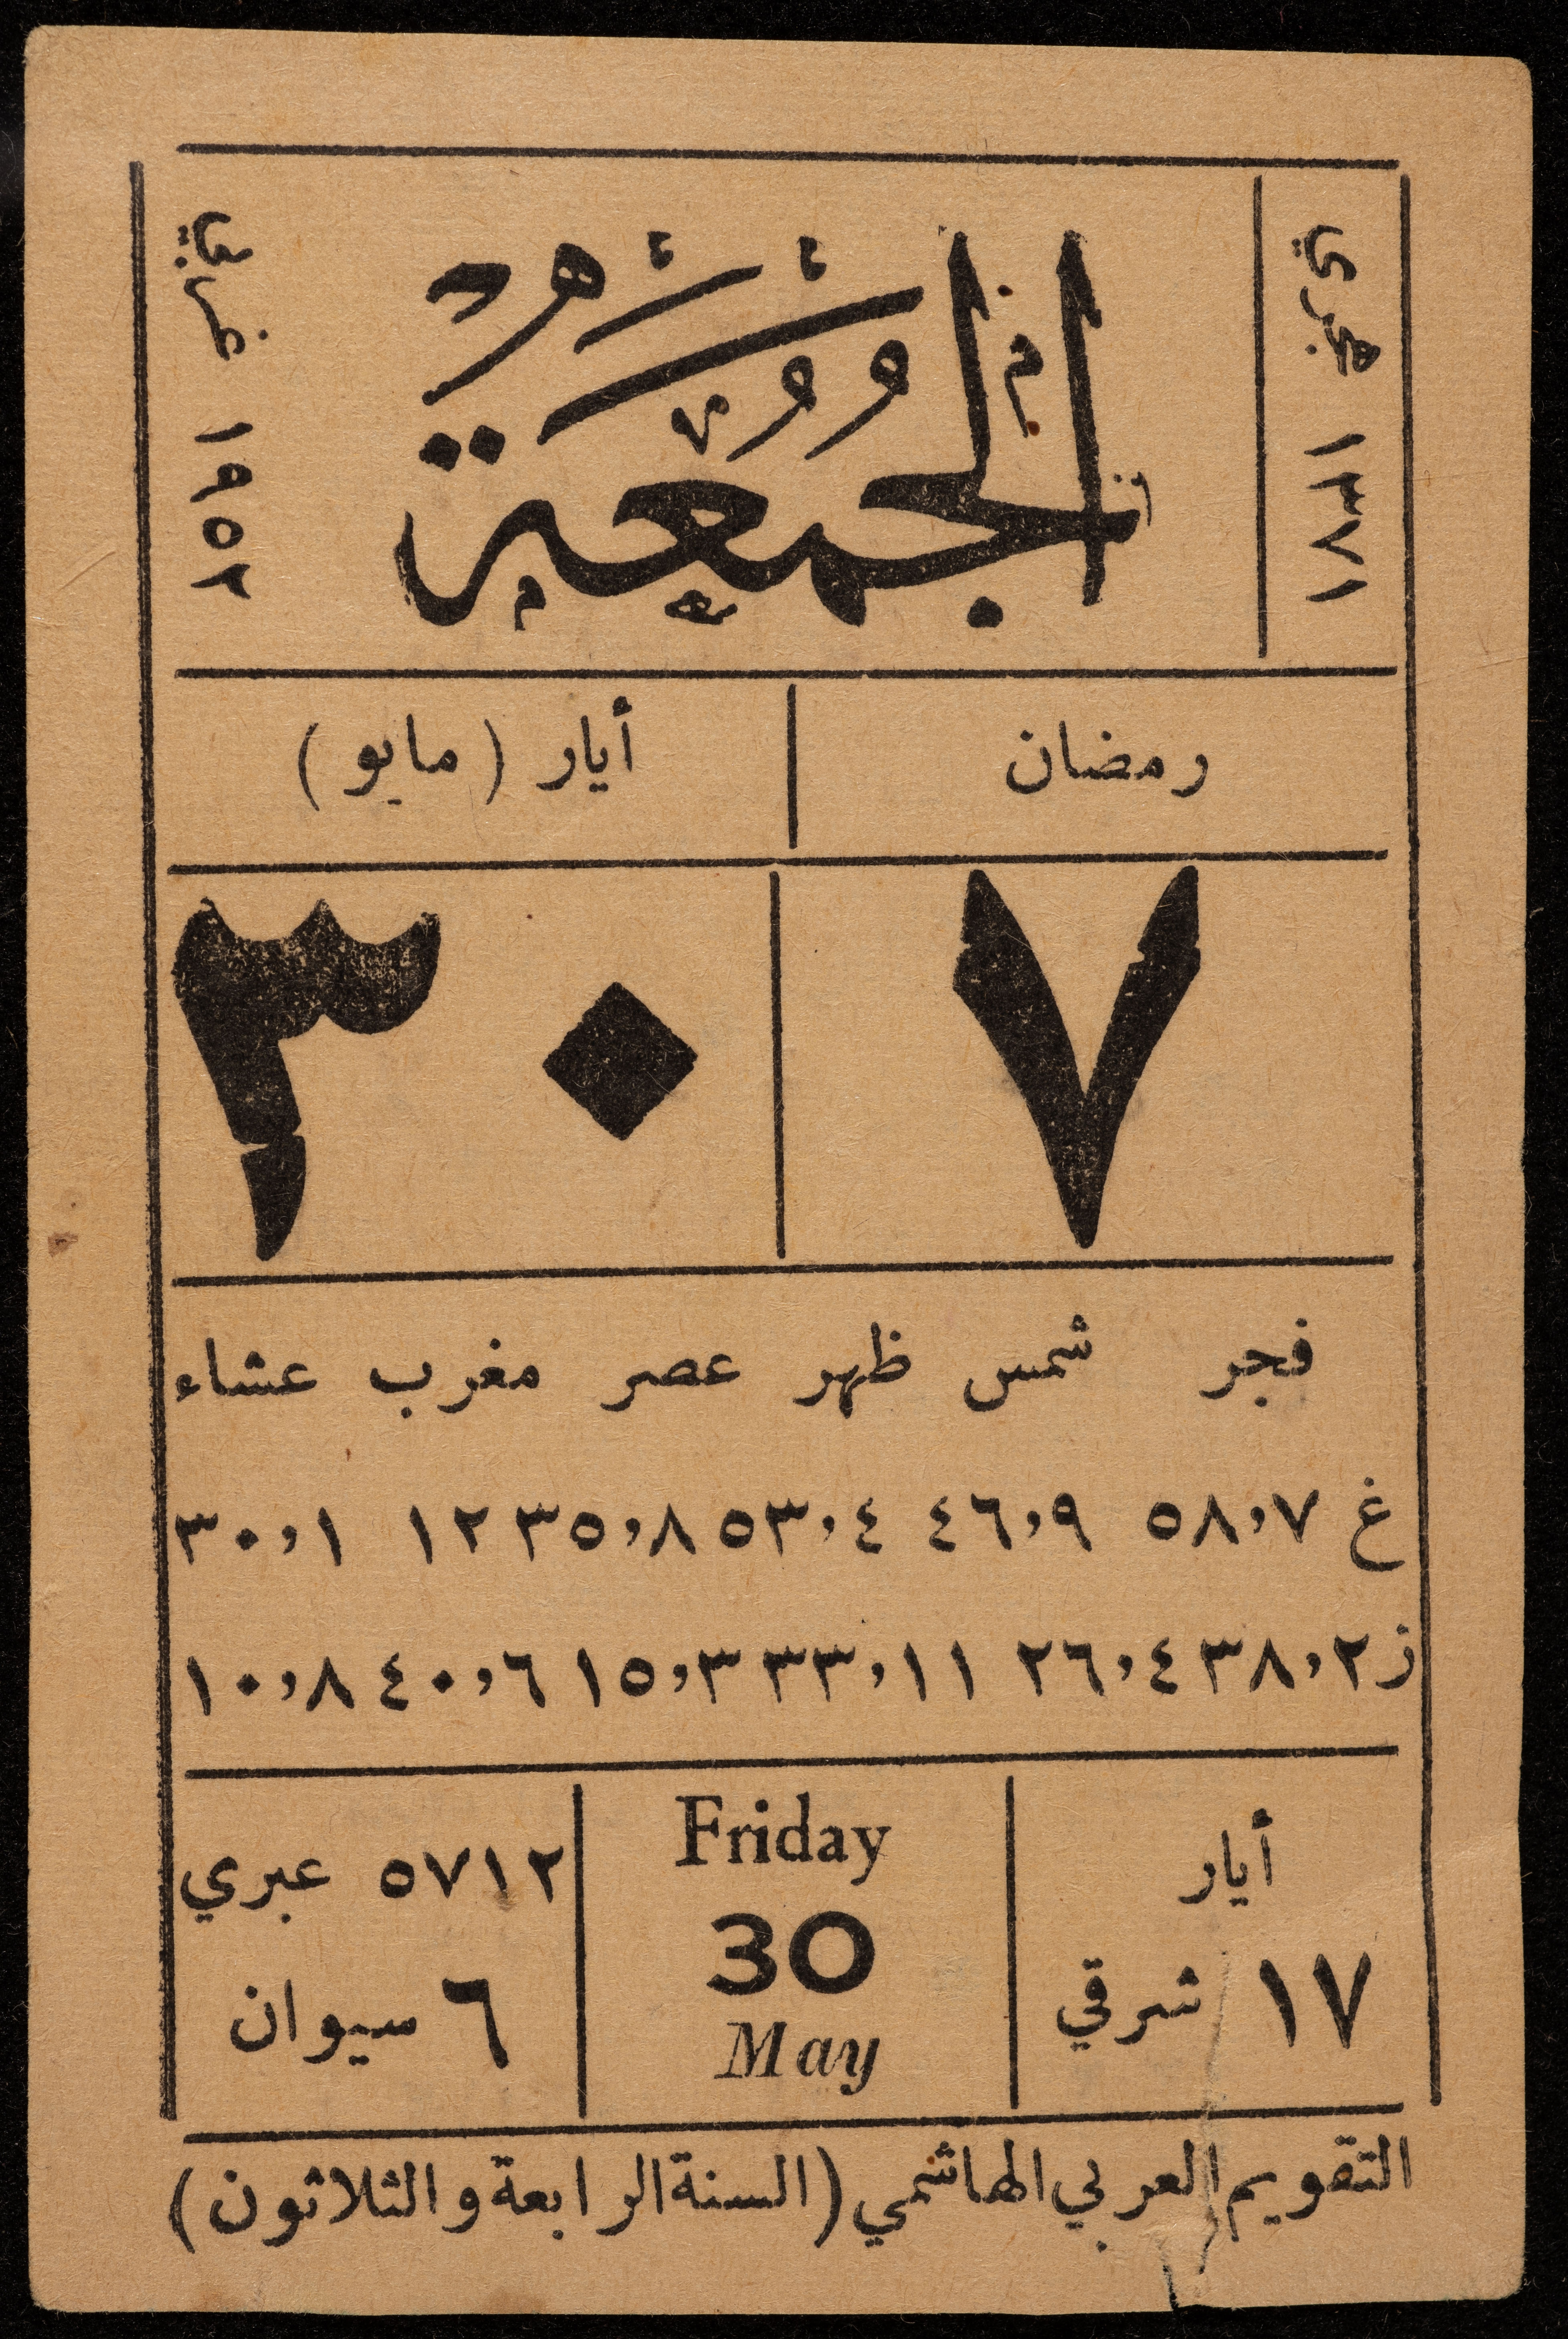 هجري ١٣٧١
الجمعة
غربي ١٩٥٢
رمضان
أيار (مايو)
٧
٣٠
فجر شمس ظهر عصر مغرب عشاء
غ ٥٨,٧ ٤٦,٩ ٥٣,٤ ٣٥,٨ ١٢ ٣٠,١
ز ٣٨,٢ ٢٦,٤ ٣٣,١١ ١٥,٣ ٤٠,٦ ١٠,٨
أيار
١٧ شرقي
Friday
30
May
٥٧١٢ عبري
٦ سيوان
التقويم العربي الهاشمي (السنة الرابعة والثلاثون)